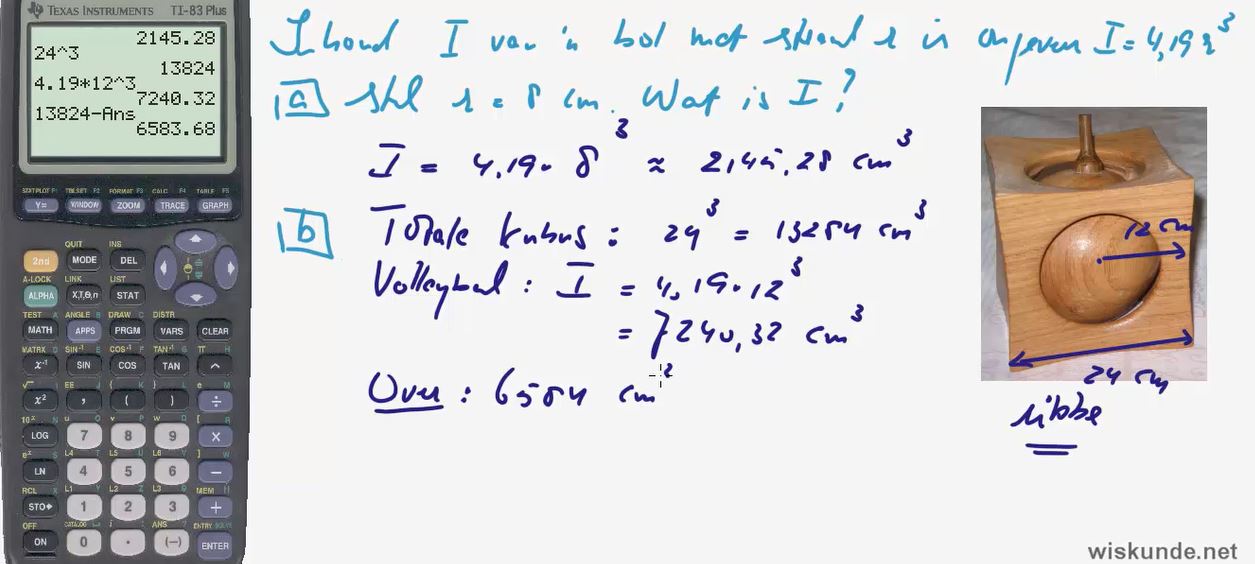 TEXAS INSTRUMENTS TI-83 Plus
2145.28
24^3
13824
4.19*12^3
7240.32
13824-Ans
6583.68
STAT PLOT F1 TBLSET F2 FORMAT F3 CALC F4 TABLE F5
Y= WINDOW ZOOM TRACE GRAPH
QUIT INS
2nd MODE DEL
A-LOCK LINK LIST
ALPHA X,T,Θ,n STAT
TEST A ANGLE B DRAW C DISTR
MATH APPS PRGM VARS CLEAR
MATRX D SIN⁻¹ E COS⁻¹ F TAN⁻¹ G π H
x⁻¹ SIN COS TAN ^
√ I EE J { K } L e M
x² , ( ) ÷
10ˣ N u O v P w Q [ R
LOG 7 8 9 ×
eˣ S L4 T L5 U L6 V ] W
LN 4 5 6 −
RCL X L1 Y L2 Z L3 θ MEM "
STO▸ 1 2 3 +
OFF CATALOG i : ANS ? ENTRY SOLVE
ON 0 . (−) ENTER
Inhoud I van 'n bol met straal r is ongeveer I = 4,19 r³
a Stel r = 8 cm. Wat is I?
I = 4,19 · 8³ ≈ 2145,28 cm³
b Totale kubus : 24³ = 13284 cm³
Volleybal : I = 4,19 · 12³
= 7240,32 cm³
Over : 6584 cm²
12 cm
24 cm
ribbe
wiskunde.net